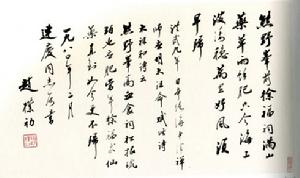 熊野峯前徐福祠满山
药草雨馀肥只今海上
波涛稳万里好风须
早归
洪武九年日本绝海中津禅
师应明太祖命赋此诗
太祖和诗云
熊野峯高血食祠松根琥
珀也应肥当年徐福求仙
药直到如今更不归
建庆同志属书
一九八〇年二月
赵朴初